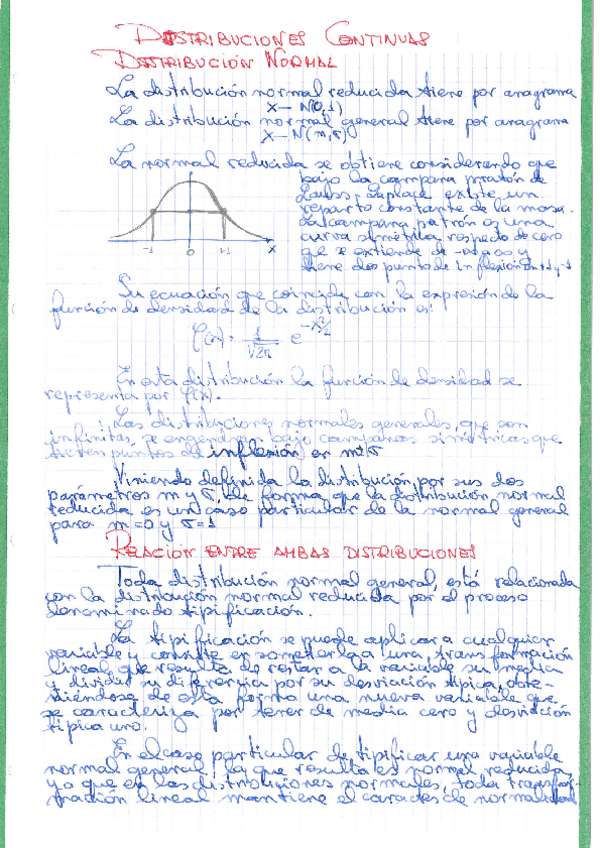 DISTRIBUCIONES CONTINUAS
DISTRIBUCIÓN NORMAL
La distribución normal reducida tiene por anagrama
X — N(0,1)
La distribución normal general tiene por anagrama
X — N(m,σ)
La normal reducida se obtiene considerando que
bajo la campana patrón de
Gauss-Laplace existe un
reparto constante de la masa.
La campana patrón es una
curva simétrica respecto de cero
que se extiende de -∞ a ∞ y
tiene dos puntos de inflexión en +1 y -1
-1 0 +1 X
Su ecuación que coincide con la expresión de la
función de densidad de la distribución es:
φ(x) = 1/√2π e^-x²/2
En esta distribución la función de densidad se
representa por φ(x).
Las distribuciones normales generales, que son
infinitas, se engendran bajo campanas simétricas que
tienen puntos de inflexión en m±σ
Viniendo definida la distribución, por sus dos
parámetros m y σ, de forma que la distribución normal
reducida es un caso particular de la normal general
para m=0 y σ=1
RELACIÓN ENTRE AMBAS DISTRIBUCIONES
Toda distribución normal general, está relacionada
con la distribución normal reducida por el proceso
denominado tipificación.
La tipificación se puede aplicar a cualquier
variable y consiste en someterla a una transformación
lineal, que resulta de restar a la variable su media
y dividir su diferencia por su desviación típica, obte-
niéndose de esta forma una nueva variable que
se caracteriza por tener de media cero y desviación
típica uno.
En el caso particular de tipificar una variable
normal general, la que resulta es normal reducida,
ya que en las distribuciones normales, toda transfor-
mación lineal mantiene el carácter de normalidad